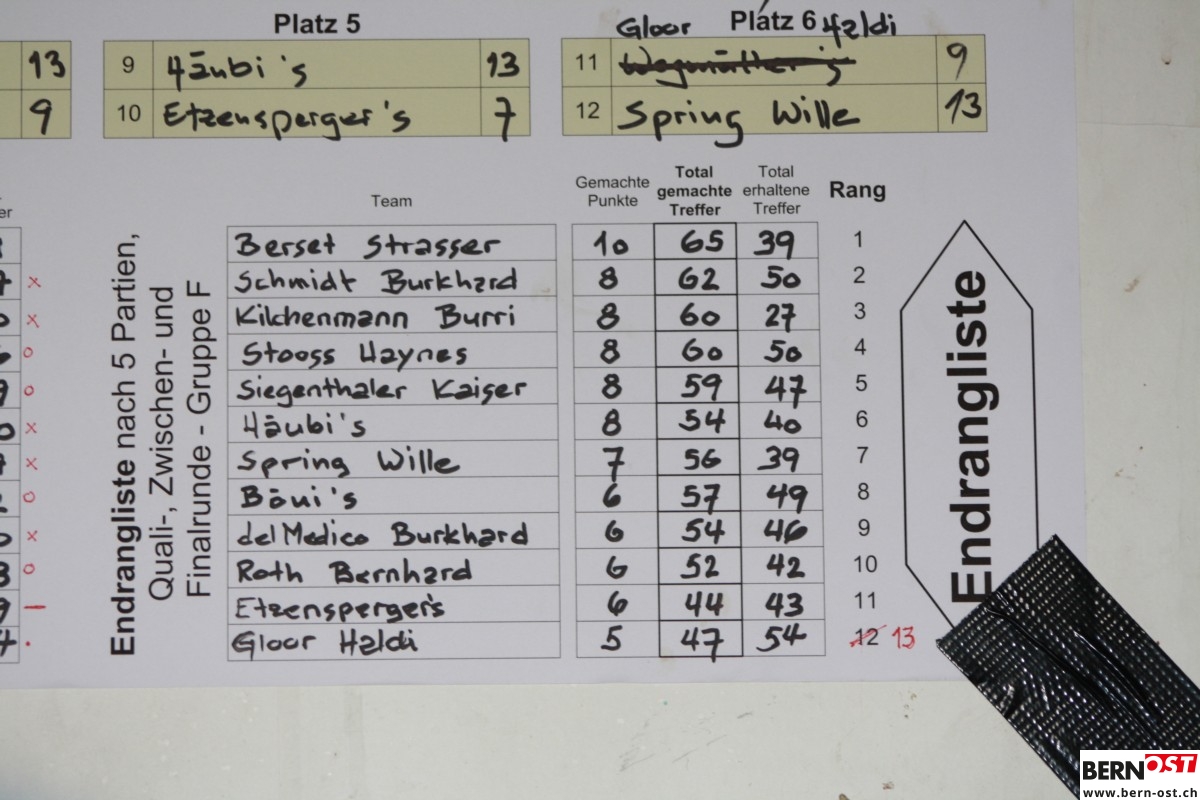 Platz 5
Gloor Platz 6 Haldi
13 9 Häubi's 13 11 9
9 10 Etzensperger's 7 12 Spring Wille 13
Team Gemachte Punkte Total gemachte Treffer Total erhaltene Treffer Rang
Endrangliste nach 5 Partien,
Quali-, Zwischen- und
Finalrunde - Gruppe F
Berset Strasser 10 65 39 1
Schmidt Burkhard 8 62 50 2
Kilchenmann Burri 8 60 27 3
Stooss Haynes 8 60 50 4
Siegenthaler Kaiser 8 59 47 5
Häubi's 8 54 40 6
Spring Wille 7 56 39 7
Böni's 6 57 49 8
delMedico Burkhard 6 54 46 9
Roth Bernhard 6 52 42 10
Etzensperger's 6 44 43 11
Gloor Haldi 5 47 54 12 13
Endrangliste
BERNOST
www.bern-ost.ch